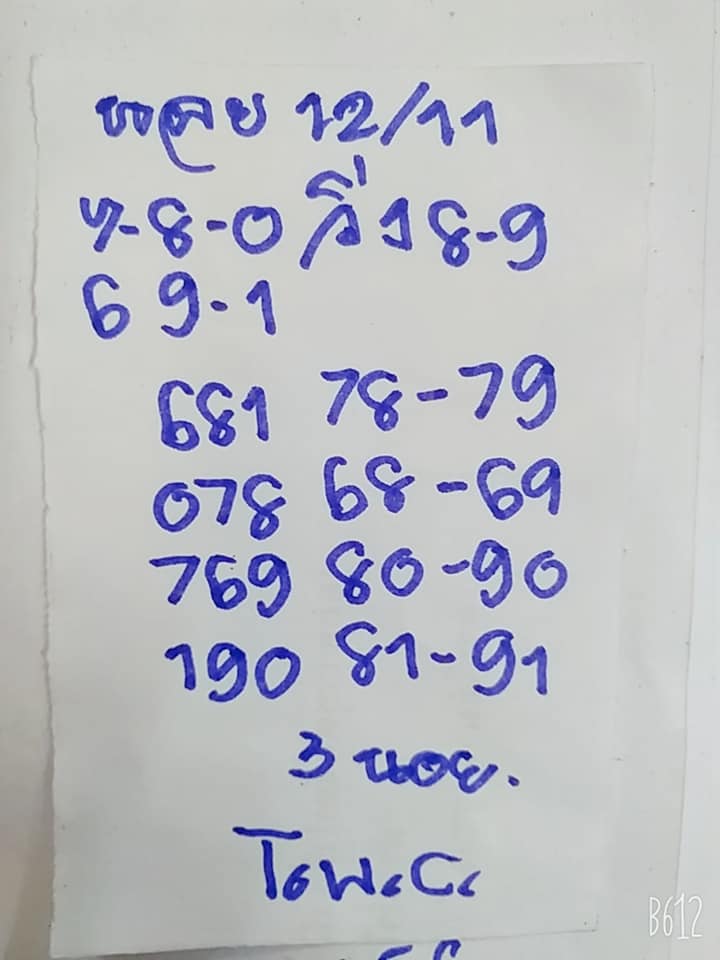 ฮานอย 12/11
7-8-0 วิ่ง 8-9
6 9-1
681 78-79
078 68-69
769 80-90
190 81-91
3 นอย.
B612